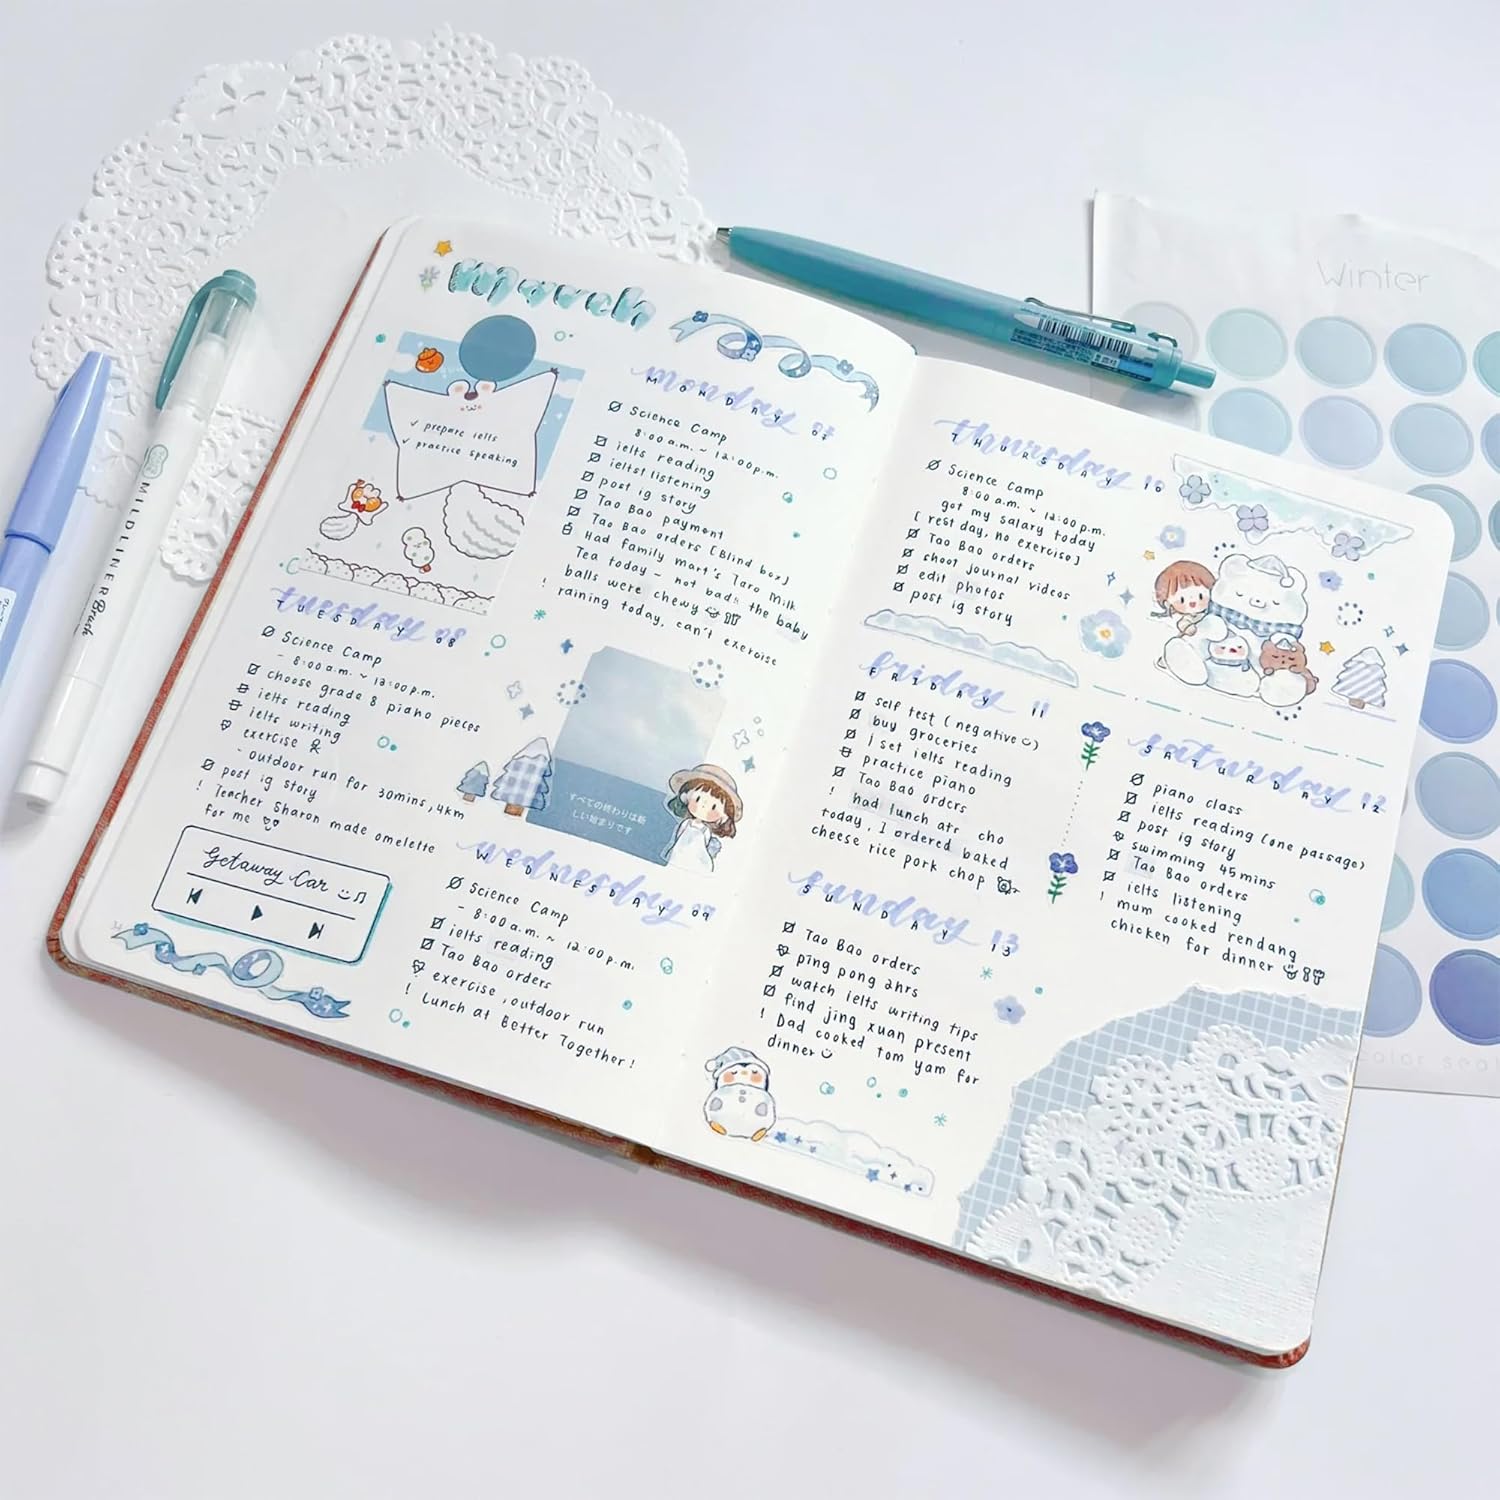 March
✓ prepare ielts
✓ practice speaking
monday 07
MONDAY 07
Science Camp
8:00 a.m. ~ 12:00 p.m.
ielts reading
ielts listening
post ig story
Tao Bao payment
Tao Bao orders [Blind box]
Had family mart's Taro Milk
Tea today - not bad!! the baby
balls were chewy
! raining today, can't exercise
tuesday 08
TUESDAY 08
Science Camp
- 8:00 a.m. ~ 12:00 p.m.
choose grade 8 piano pieces
ielts reading
ielts writing
exercise
- outdoor run for 30mins, 4km
post ig story
! Teacher Sharon made omelette
for me
Getaway Car
34
すべての終わりは新
しい始まりです
wednesday 09
WEDNESDAY 09
Science Camp
- 8:00 a.m. ~ 12:00 p.m.
ielts reading
Tao Bao orders
exercise, outdoor run
! Lunch at Better Together!
thursday 10
THURSDAY 10
Science Camp
8:00 a.m. ~ 12:00 p.m.
got my salary today
[rest day, no exercise]
Tao Bao orders
shoot journal videos
edit photos
post ig story
friday 11
FRIDAY 11
self test (negative)
buy groceries
1 set ielts reading
practice piano
Tao Bao orders
! had lunch atr cho
today, I ordered baked
cheese rice pork chop
saturday 12
SATURDAY 12
piano class
ielts reading (one passage)
post ig story
swimming 45mins
Tao Bao orders
ielts listening
! mum cooked rendang
chicken for dinner
sunday 13
SUNDAY 13
Tao Bao orders
ping pong 2hrs
watch ielts writing tips
find jing xuan present
! Dad cooked tom yam for
dinner
MILDLINER Brush
Winter
color seal